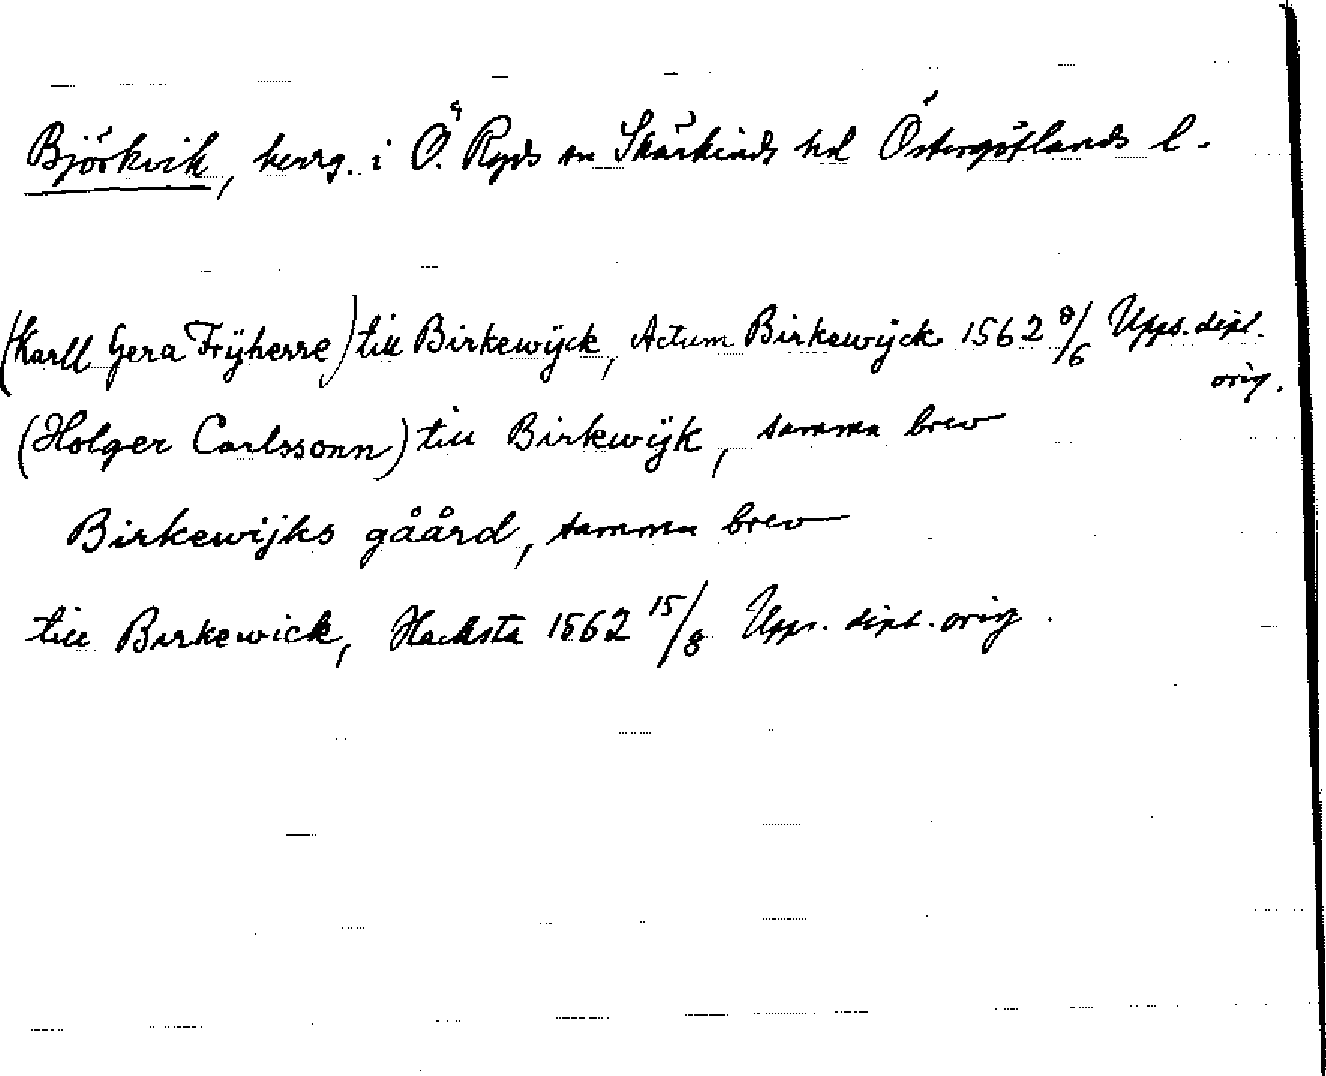 Björkvik, herrg. i Ö. Ryds sn Skärkinds hd Östergötlands l.
(Karll Gera Frÿherre) till Birkewÿck, Actum Birkewÿck 1562 8/6 Upps. dipl.
orig.
(Holger Carlssonn) till Birkwÿk, samma brev
Birkewijks gåård, samma brev
till Birkewick, Hacksta 1562 15/8 Upps. dipl. orig.